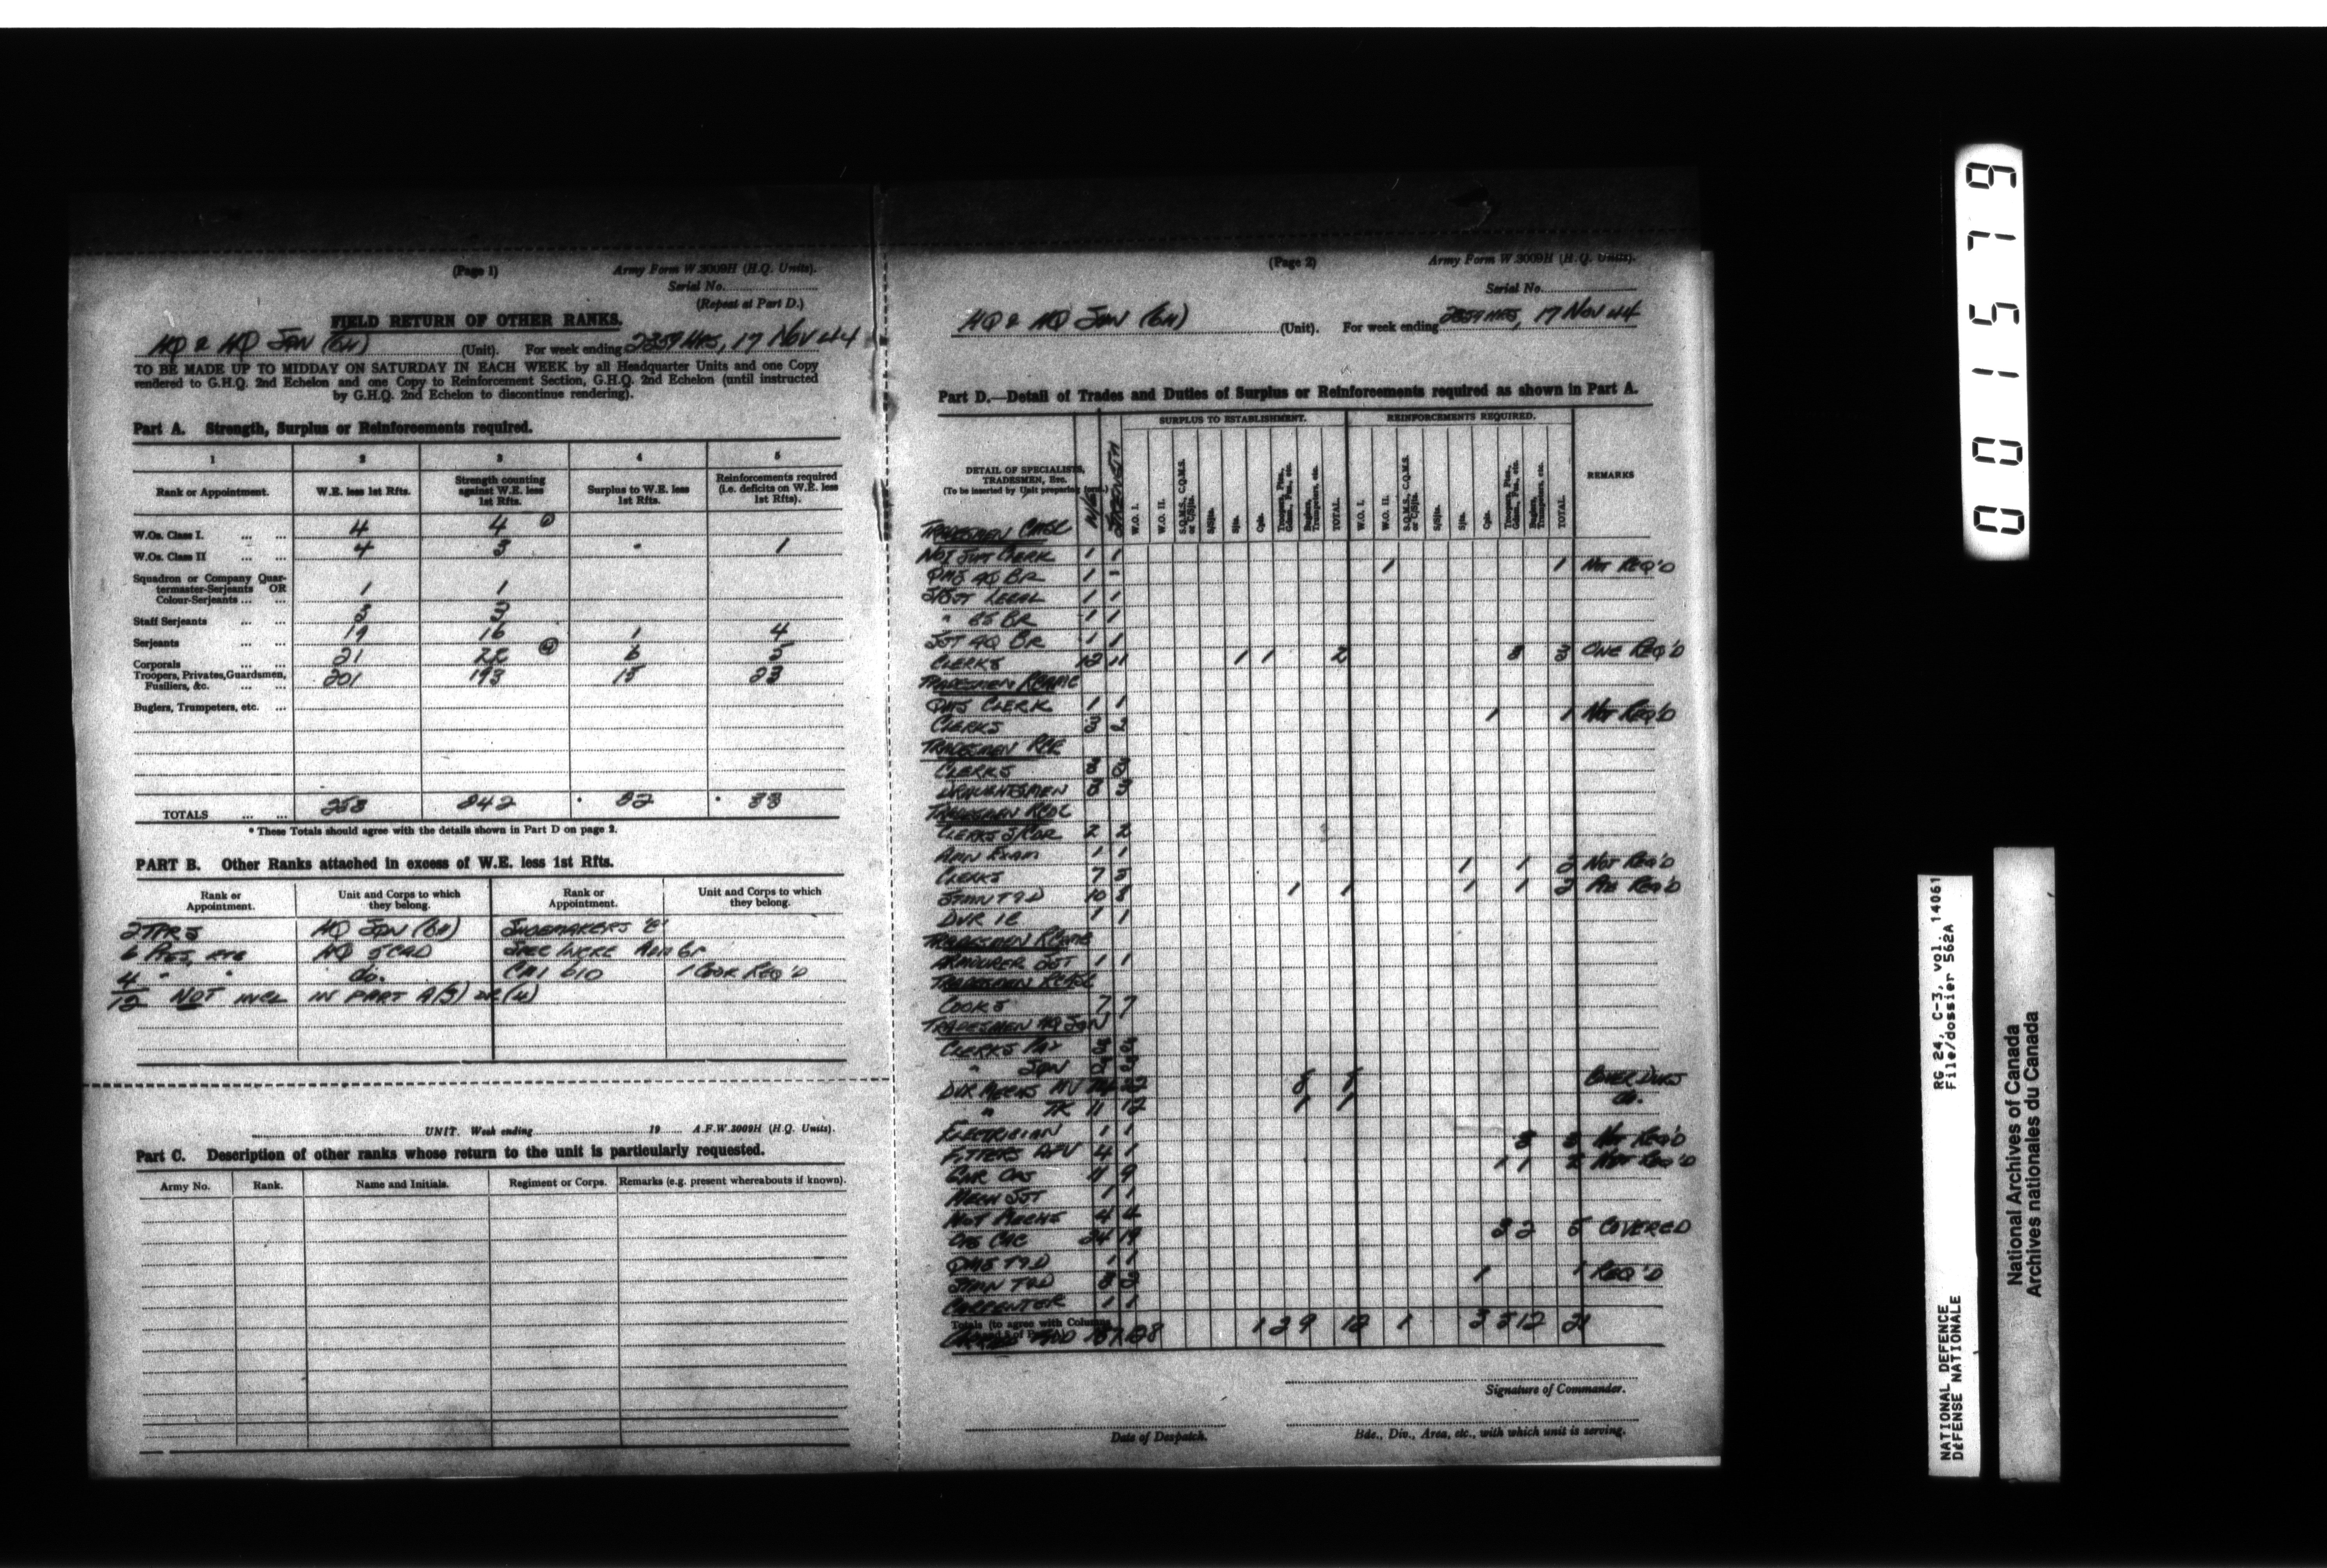 (Page 1) Army Form W.3009H (H.Q. Units).
Serial No.
(Repeat at Part D.)
FIELD RETURN OF OTHER RANKS.
HQ & HQ SQN (6H) (Unit). For week ending 2359 HRS, 17 NOV 44
TO BE MADE UP TO MIDDAY ON SATURDAY IN EACH WEEK by all Headquarter Units and one Copy
rendered to G.H.Q. 2nd Echelon and one Copy to Reinforcement Section, G.H.Q. 2nd Echelon (until instructed
by G.H.Q. 2nd Echelon to discontinue rendering).
Part A. Strength, Surplus or Reinforcements required.
1 2 3 4 5
Rank or Appointment. W.E. less 1st Rfts. Strength counting against W.E. less 1st Rfts. Surplus to W.E. less 1st Rfts. Reinforcements required (i.e. deficits on W.E. less 1st Rfts).
W.Os. Class I. ... ... 4 4
W.Os. Class II ... ... 4 3 1
Squadron or Company Quar-
termaster-Serjeants OR
Colour-Serjeants ... ... 1 1
Staff Serjeants ... ... 3 3
Serjeants ... ... 19 16 1 4
Corporals ... ... 21 22 6 5
Troopers, Privates, Guardsmen,
Fusiliers, &c. ... ... 201 193 15 23
Buglers, Trumpeters, etc. ...
TOTALS ... ... 253 242 22 33
* These Totals should agree with the details shown in Part D on page 2.
PART B. Other Ranks attached in excess of W.E. less 1st Rfts.
Rank or Appointment. Unit and Corps to which they belong. Rank or Appointment. Unit and Corps to which they belong.
2 TPRS HQ SQN (6H) SHOEMAKERS 'C'
6 PTES, HQ
4 " " do. 1 COOK REQ'D
12 NOT INCL IN PART A(3) OR (4)
UNIT. Week ending 19 A.F.W.3009H (H.Q. Units).
Part C. Description of other ranks whose return to the unit is particularly requested.
Army No. Rank. Name and Initials. Regiment or Corps. Remarks (e.g. present whereabouts if known).
(Page 2) Army Form W.3009H (H.Q. Units).
Serial No.
HQ & HQ SQN (6H) (Unit). For week ending 2359 HRS, 17 NOV 44
Part D.—Detail of Trades and Duties of Surplus or Reinforcements required as shown in Part A.
DETAIL OF SPECIALISTS, TRADESMEN, Etc. (To be inserted by Unit preparing form) W/E STRENGTH SURPLUS TO ESTABLISHMENT. REINFORCEMENTS REQUIRED. REMARKS
W.O. I. W.O. II. S.Q.M.S., C.Q.M.S. or C/Sjts. S/Sjts. Sjts. Cpls. Troopers, Ptes., Gdsmn., Fus., etc. Buglers, Trumpeters, etc. TOTAL.
W.O. I. W.O. II. S.Q.M.S., C.Q.M.S. or C/Sjts. S/Sjts. Sjts. Cpls. Troopers, Ptes., Gdsmn., Fus., etc. Buglers, Trumpeters, etc. TOTAL.
TRADESMEN
CLERK 1 1
QMS AQ BR 1 - 1 1 NOT REQ'D
S/SJT LEGAL 1 1
" GS BR 1 1
SJT AQ BR 1 1
CLERKS 12 11 1 1 2 3 3 ONE REQ'D
TRADESMEN RCAMC
QMS CLERK 1 1
CLERKS 3 2 1 1 NOT REQ'D
TRADESMEN RCE
CLERKS
DRAUGHTSMEN 3 3
TRADESMEN
CLERKS 2 2
AMN EXAM 1 1
CLERKS 7 5 1 1 2 NOT REQ'D
STMN T&D 10 8 1 1 1 1 2 REQ'D
DVR IC 1 1
TRADESMEN RCEME
ARMOURER SJT 1 1
TRADESMEN RCASC
COOKS 7 7
TRADESMEN HQ SQN
CLERKS PAY
" SQN
DVR MECHS 8 8
" TK 11 12 1 1 do.
ELECTRICIAN 1 1
FITTERS AFV 4 1 3 3 NOT REQ'D
GNR OPS 11 9 1 1 2 NOT REQ'D
MECH SJT 1 1
4 4
24 19 3 2 5 COVERED
QMS T&D 1 1
STMN T&D 3 2 1 1 REQ'D
CARPENTER 1 1
Totals (to agree with Columns
1 2 9 12 1 3 5 12 21
Signature of Commander.
Date of Despatch. Bde., Div., Area, etc., with which unit is serving.
001579
NATIONAL DEFENCE RG 24, C-3, vol. 14061
DÉFENSE NATIONALE File/dossier 562A
National Archives of Canada
Archives nationales du Canada